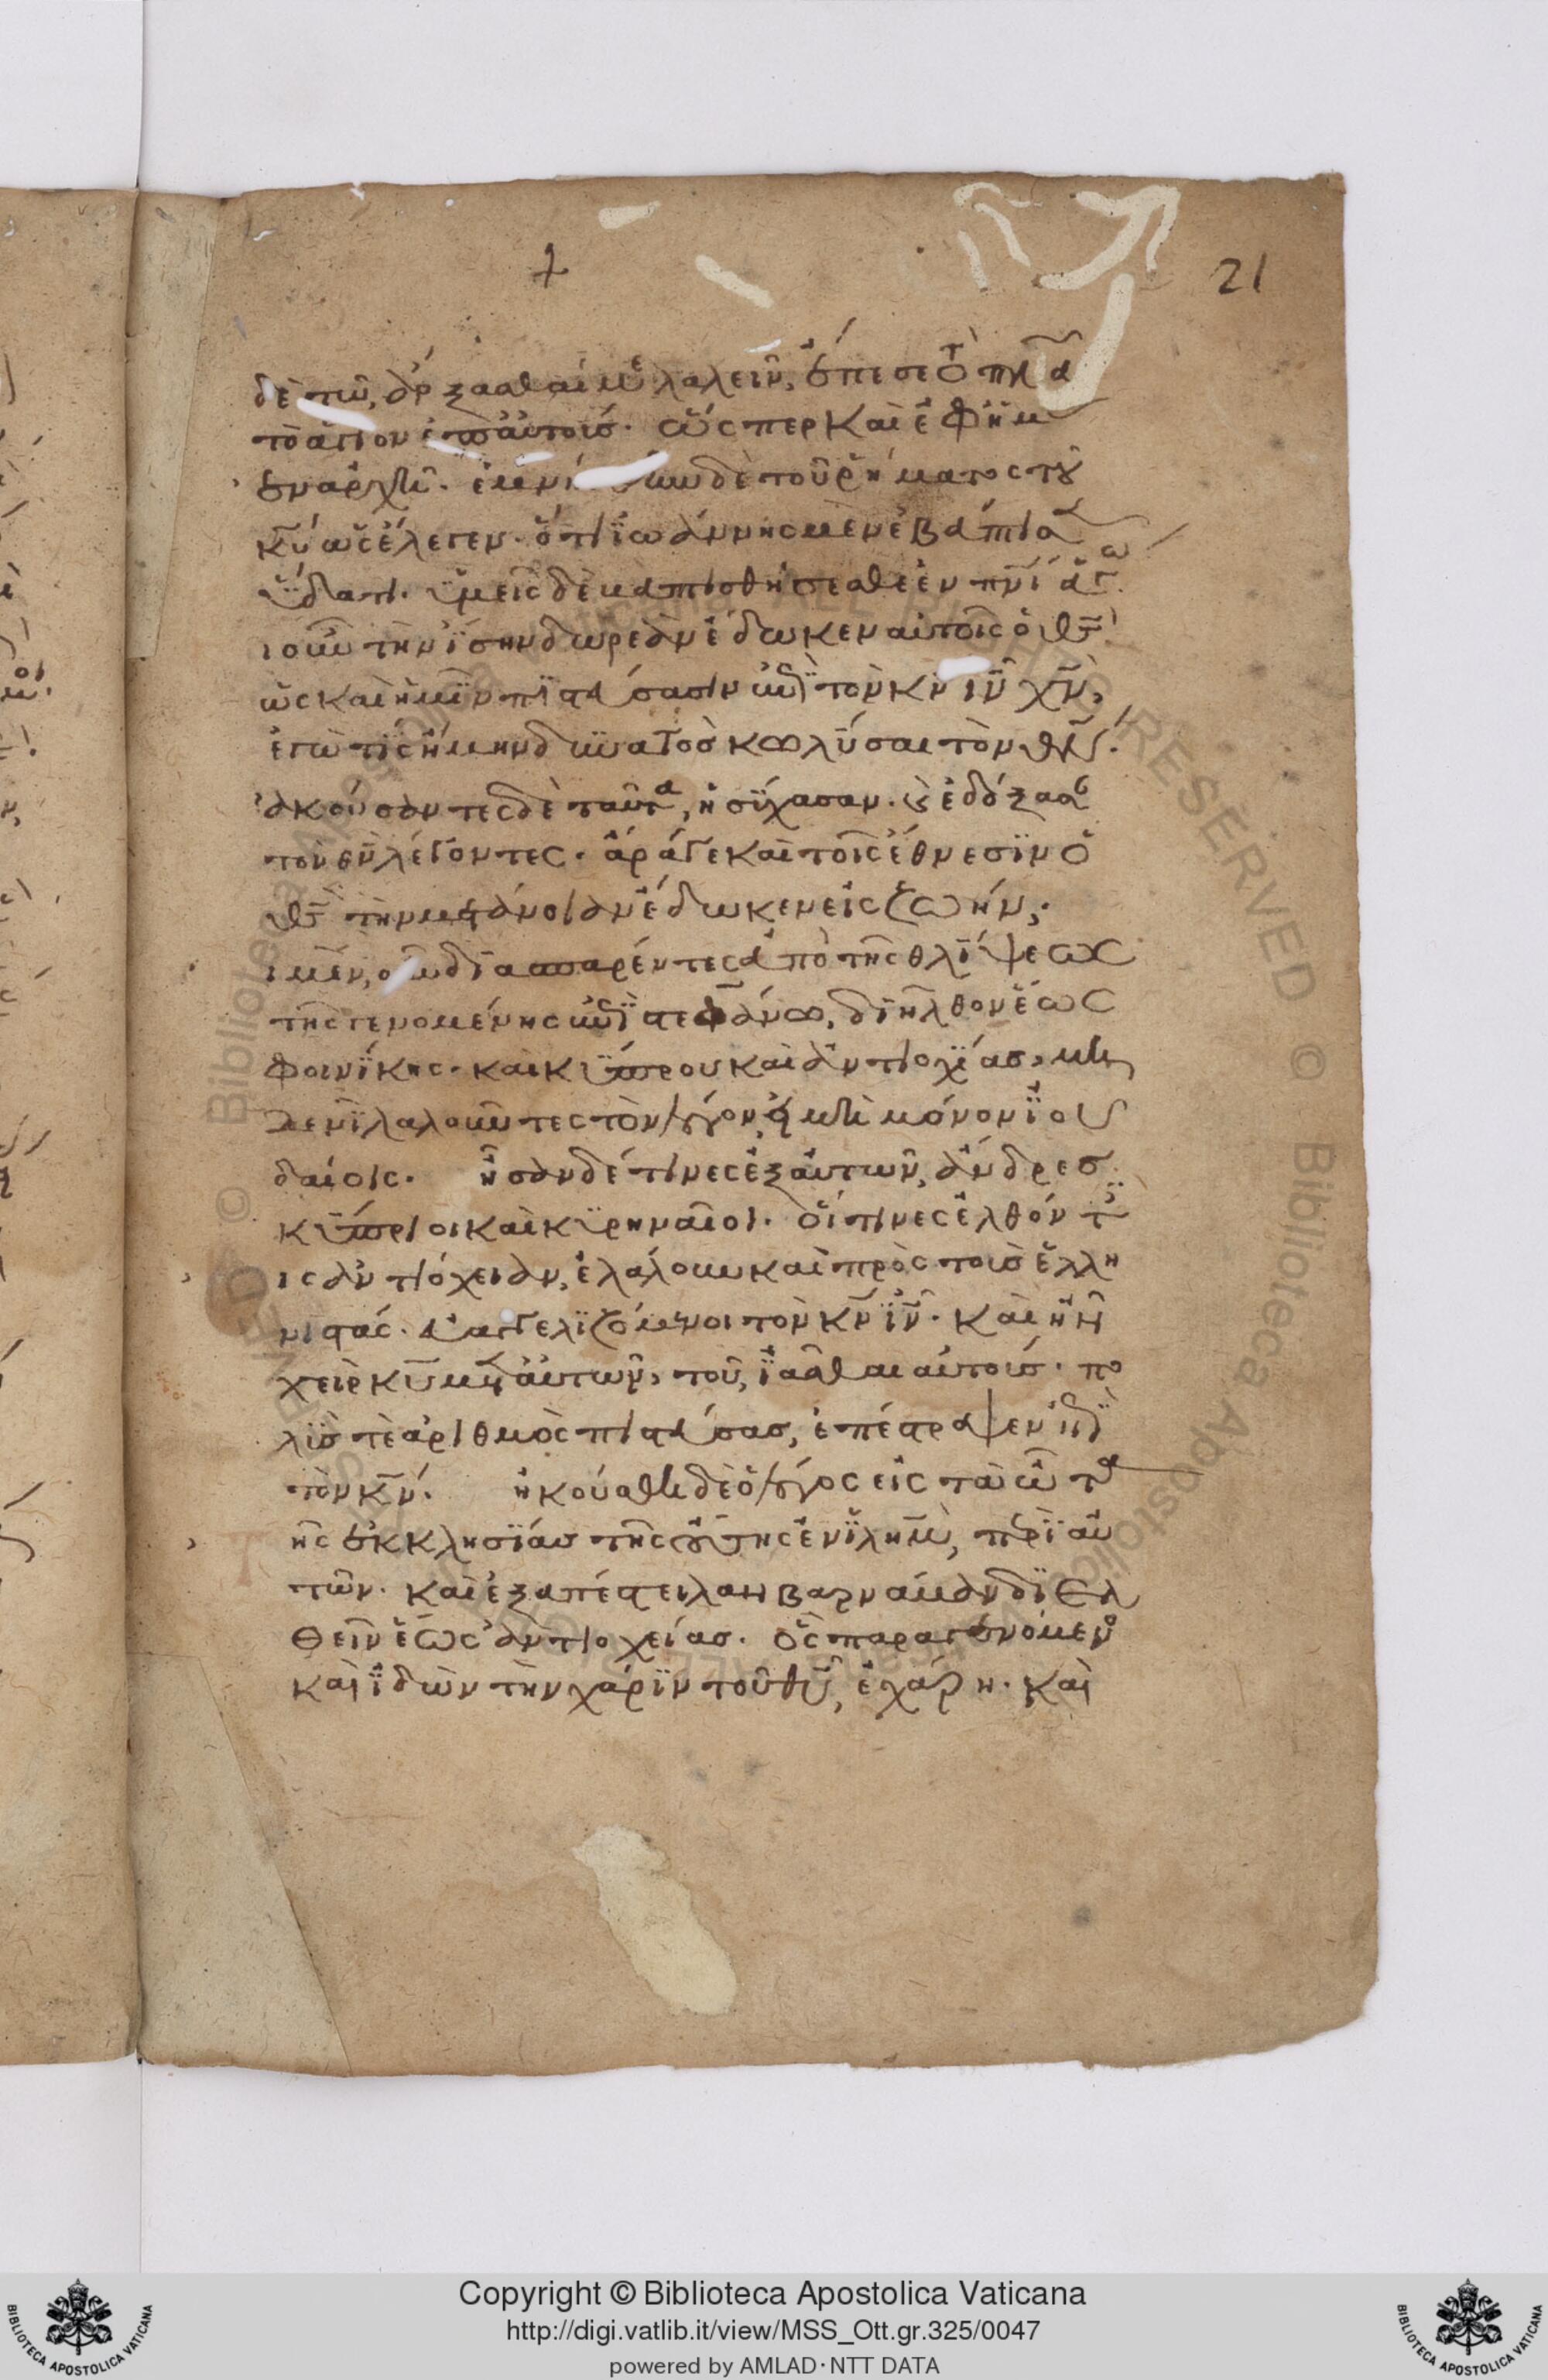 21
δὲ τῶ, ἄρξασθαί με λαλεῖν, ἔπεσε τὸ πνα
τὸ ἅγιον ἐπ αὐτούς. ὥσπερ καὶ ἐφ ἡμ
ἐν ἀρχῆ. δὲ τοῦ ῥήματος τοῦ
κυ ὡς ἔλεγεν. ὅτι ϊωάννης μὲν ἐβάπτισ
ὕδατι. ὑμεῖς δὲ βαπτισθήσεσθε ἐν πνι ἁγίω
ι οὖν τὴν ἴσην δωρεὰν ἔδωκεν αὐτοῖς ὁ θς
ὡς καὶ ἡμῖν πϊστεύσασιν ἐπὶ τὸν κν ιν χν,
ἐγὼ τίς ἤμην δυνατὸς κωλῦσαι τὸν θν.
ἀκούσαντες δὲ ταῦτα, ἡσύχασαν. καὶ ἐδόξασ
τὸν θν λέγοντες. ἄρά γε καὶ τοῖς ἔθνεσϊν ὁ
θς τὴν μετάνοιαν ἔδωκεν εἰς ζωήν.
ι μὲν, οὖν διασπαρέντες ἀπὸ τῆς θλίψεως
τῆς γενομένης ἐπὶ στεφάνω, διῆλθον ἕως
φοινίκης. καὶ κύπρου καὶ ἀντιοχίας, μη
δενὶ λαλοῦντες τὸν λόγον, εἰ μὴ μόνον ϊου
δαίοις. ἦσαν δέ τινες ἐξ αὐτῶν, ἄνδρες
κύπριοι καὶ κυρηναῖοι. οἵτινες ἐλθόντ
ις ἀντιόχειαν, ἐλάλουν καὶ πρὸς τοὺς ἕλλη
νιστάς. εὐαγγελϊζόμενοι τὸν κν ϊν. καὶ ἦν
χεὶρ κυ μετ αὐτῶν, τοῦ, ϊᾶσθαι αὐτούς. πο
λὺς τὲ ἀριθμὸς πιστεύσας, ἐπέστρεψεν ἐπὶ
τὸν κν. ἠκούσθη δὲ ὁ λόγος εἰς τὰ ὦτα
ῆς ἐκκλησϊας τῆς οὔσης ἐν ϊλημ, περὶ αὐ
τῶν. καὶ ἐξαπέστειλαν βαρνάβαν διελ
θεῖν ἕως ἀντιοχείας. ὃς παραγενόμεν
καὶ ϊδὼν τὴν χάριν τοῦ θυ, ἐχάρη. καὶ
Copyright © Biblioteca Apostolica Vaticana
http://digi.vatlib.it/view/MSS_Ott.gr.325/0047
powered by AMLAD·NTT DATA
BIBLIOTECA APOSTOLICA VATICANA
BIBLIOTECA APOSTOLICA VATICANA